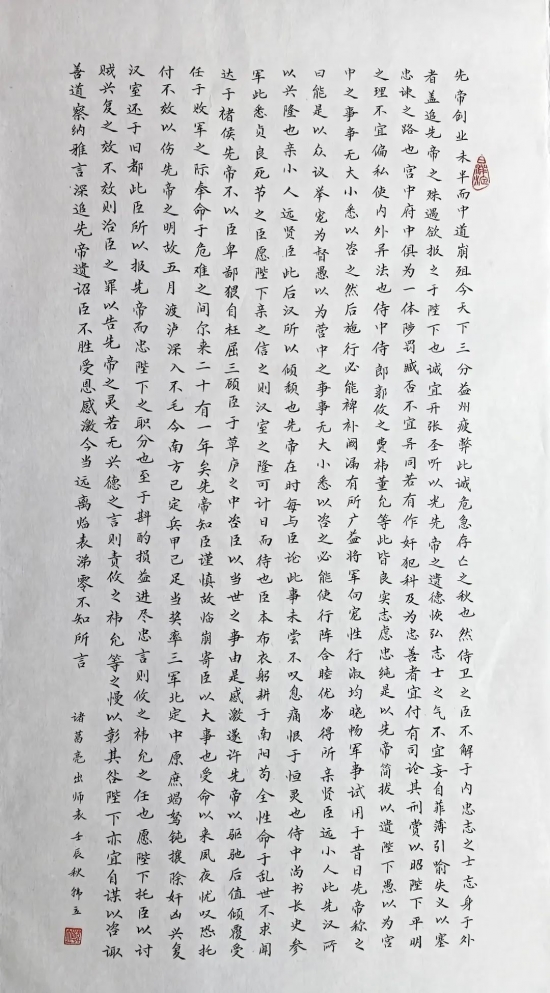 先帝创业未半而中道崩殂今天下三分益州疲弊此诚危急存亡之秋也然侍卫之臣不解于内忠志之士忘身于外
者盖追先帝之殊遇欲报之于陛下也诚宜开张圣听以光先帝之遗德恢弘志士之气不宜妄自菲薄引喻失义以塞
忠谏之路也宫中府中俱为一体陟罚臧否不宜异同若有作奸犯科及为忠善者宜付有司论其刑赏以昭陛下平明
之理不宜偏私使内外异法也侍中侍郎郭攸之费祎董允等此皆良实志虑忠纯是以先帝简拔以遗陛下愚以为宫
中之事事无大小悉以咨之然后施行必能裨补阙漏有所广益将军向宠性行淑均晓畅军事试用于昔日先帝称之
曰能是以众议举宠为督愚以为营中之事事无大小悉以咨之必能使行阵合睦优劣得所亲贤臣远小人此先汉所
以兴隆也亲小人远贤臣此后汉所以倾颓也先帝在时每与臣论此事未尝不叹息痛恨于恒灵也侍中尚书长史参
军此悉贞良死节之臣愿陛下亲之信之则汉室之隆可计日而待也臣本布衣躬耕于南阳苟全性命于乱世不求闻
达于诸侯先帝不以臣卑鄙猥自枉屈三顾臣于草庐之中咨臣以当世之事由是感激遂许先帝以驱驰后值倾覆受
任于败军之际奉命于危难之间尔来二十有一年矣先帝知臣谨慎故临崩寄臣以大事也受命以来夙夜忧叹恐托
付不效以伤先帝之明故五月渡泸深入不毛今南方已定兵甲已足当奖率三军北定中原庶竭驽钝攘除奸凶兴复
汉室还于旧都此臣所以报先帝而忠陛下之职分也至于斟酌损益进尽忠言则攸之祎允之任也愿陛下托臣以讨
贼兴复之效不效则治臣之罪以告先帝之灵若无兴德之言则责攸之祎允等之慢以彰其咎陛下亦宜自谋以咨诹
善道察纳雅言深追先帝遗诏臣不胜受恩感激今当远离临表涕零不知所言
诸葛亮出师表壬辰秋